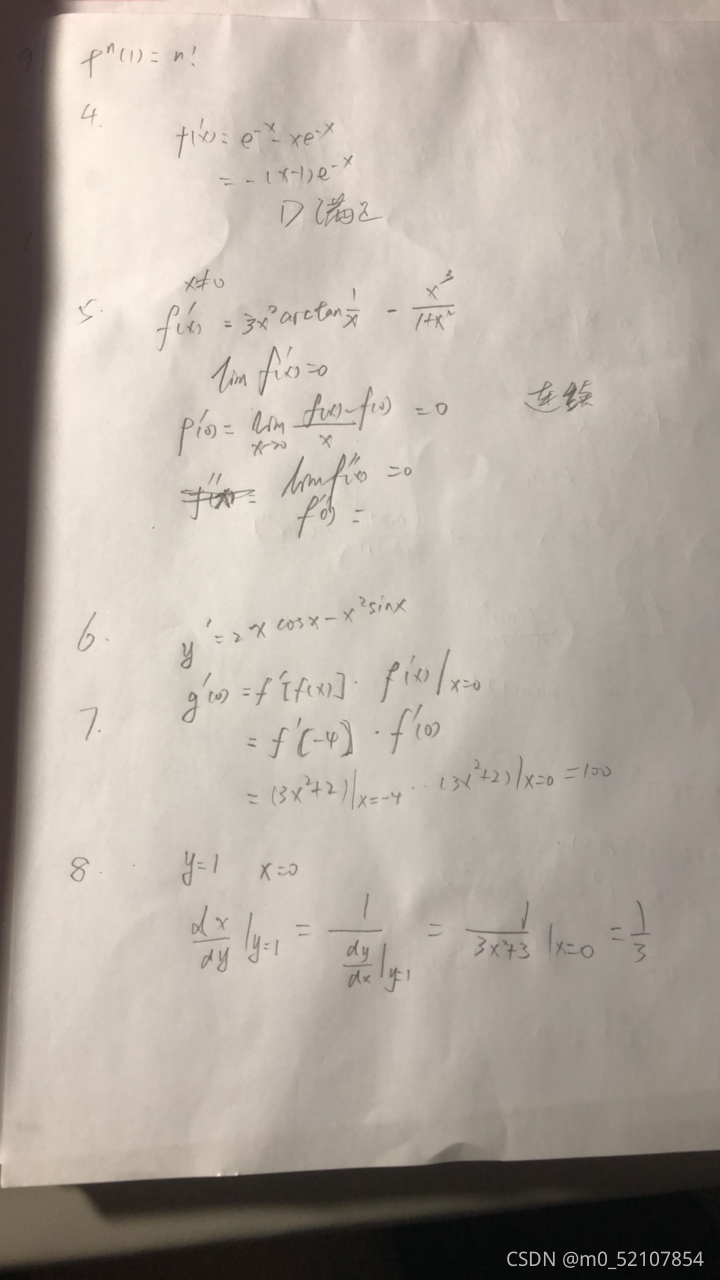 fⁿ(1) = n!
4.
f'(x) = e^{-x} - xe^{-x}
= -(x-1)e^{-x}
D 满足
x≠0
5. f'(x) = 3x² arctan 1/x - x³/(1+x²)
lim f'(x) = 0
f'(0) = lim_{x→0} (f(x)-f(0))/x = 0 连续
lim f''(x) = 0
f'(0) =
6. y' = 2x cosx - x² sinx
g'(0) = f'[f(x)] · f'(x)|x=0
7. = f'[-4] · f'(0)
= (3x²+2)|x=-4 · (3x²+2)|x=0 = 100
8. y=1 x=0
dx/dy |y=1 = 1/(dy/dx |y=1) = 1/(3x²+3) |x=0 = 1/3
CSDN @m0_52107854